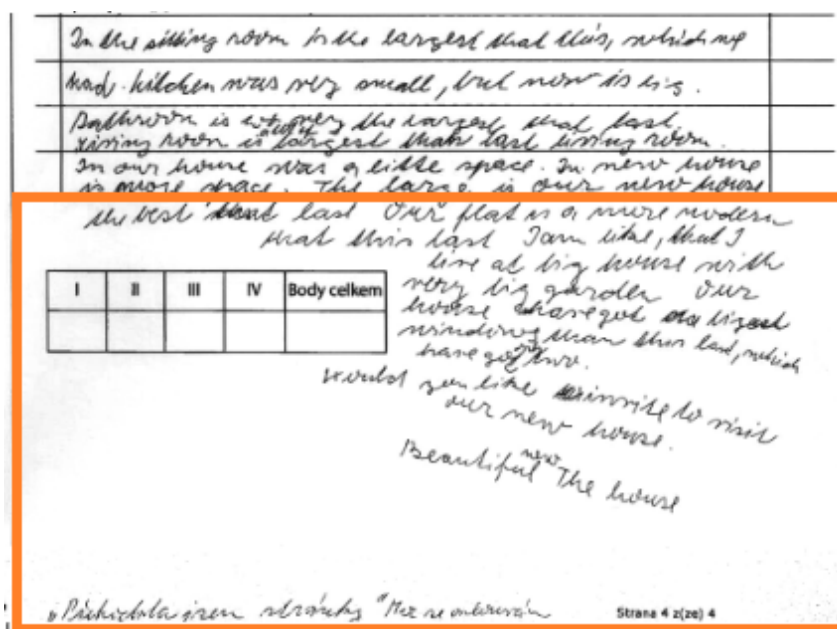 In the sitting room is the largest that this, which we
had. Kitchen was very small, but now is big.
Bathroom is very the largest that last.
Living room is largest than last living room.
In our house was a little space. In new house
is more space. The large is our new house
the best that last Our flat is a more modern
that this last I am like, that I
live at big house with
very big garden Our
house have got bigest
windows than this last, which
have got two.
Would you like invite to visit
our new house.
Beautiful new The house
I II III IV Body celkem
Strana 4 z(ze) 4